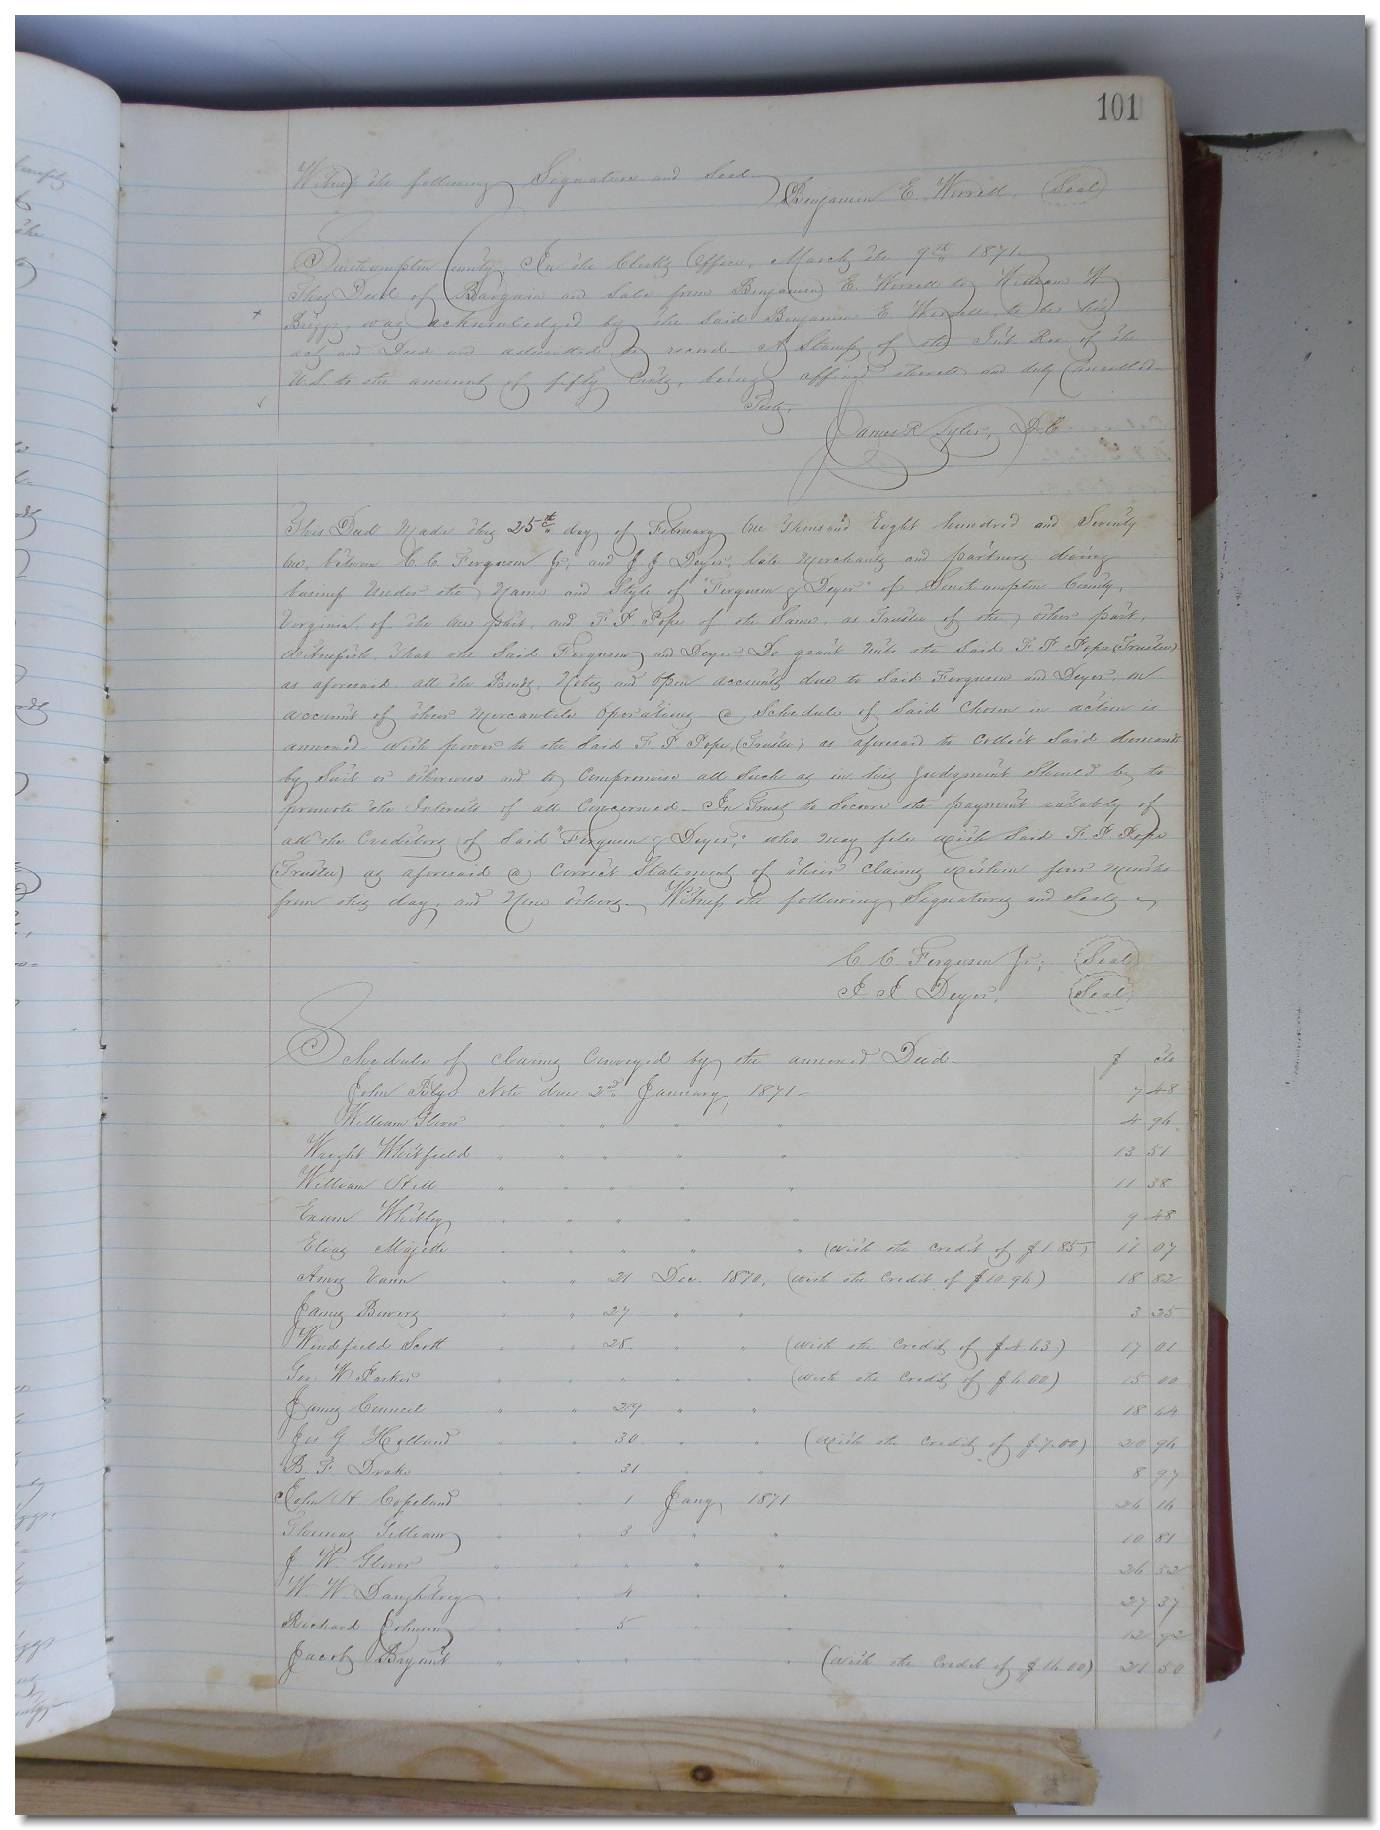 101
Witness the following Signature and Seal
Benjamin E. Worrell, (Seal)
Southampton County, In the Clerk's Office, March the 9th 1871.
This Deed of Bargain and Sale from Benjamin E. Worrell to William W
Briggs, was acknowledged by the said Benjamin E Worrell, to be his
act and Deed and admitted to record. A Stamp of the Int Rev of the
U.S. to the amount of fifty Cents, being affixed thereto and duly Cancelled
Teste,
James R Tyler, D.C
This Deed Made this 25th day of February One Thousand Eight hundred and Seventy
One, between C. C. Ferguson Jr, and J J Deyer, late Merchants and partners doing
business Under the Name and Style of "Ferguson & Deyer" of Southampton County,
Virginia, of the one part, and F. P. Pope of the Same, as Trustee of the other part,
Witnesseth, That the Said Ferguson and Deyer Do grant Unto the Said F P Pope (Trustee)
as aforesaid all the Bonds, Notes and Open accounts due to Said Ferguson and Deyer, on
account of their Mercantile Operations a Schedule of Said Chosen in action is
annexed with power to the Said F P Pope, (Trustee) as aforesaid to Collect Said demands
by Suit or otherwise and to Compromise all Such as in his Judgment Should be to
promote the Interests of all Concerned. In Trust to Secure the payment ratably of
all the Creditors of Said "Ferguson & Deyer," who May file with Said F. P. Pope
(Trustee) as aforesaid a Correct Statement of their Claims within four Months
from this day, and None others. Witness the following Signatures and Seals
C. C. Ferguson Jr, (Seal)
J. J. Deyer, (Seal)
Schedule of Claims Conveyed by the annexed Deed. $ cts
John Note due 2nd January, 1871 7 48
William Glover " " " " " 4 94
Wright Whitfield " " " " " 13 51
William Hill " " " " " 11 38
Exum Whitley " " " " " 9 48
Elias Majette " " " " " " (with the Credit of $1.85) 11 07
Amos Vann " " 21 Dec. 1870, (with the Credit of $10.94) 18 82
James Bowers " " 27 " " 3 35
Windfield Scott " " 28 " " (with the Credit of $4.63) 17 01
Geo W Parker " " " " " (with the Credit of $6.00) 15 00
James Council " " 29 " " 18 44
Jos G Holland " " 30 " " (with the Credit of $7.00) 20 94
B. F. Drake " " 31 " " 8 97
John H Copeland " " 1 Jany 1871 24 14
Thomas Gilliam " " 3 " " 10 81
J W Glover " " " " " 26 52
W. W. Daughtrey " " 4 " " 27 37
Richard Johnson " " 5 " " 12 92
Jacob Bryant " " " " " (with the Credit of $14.00) 21 50